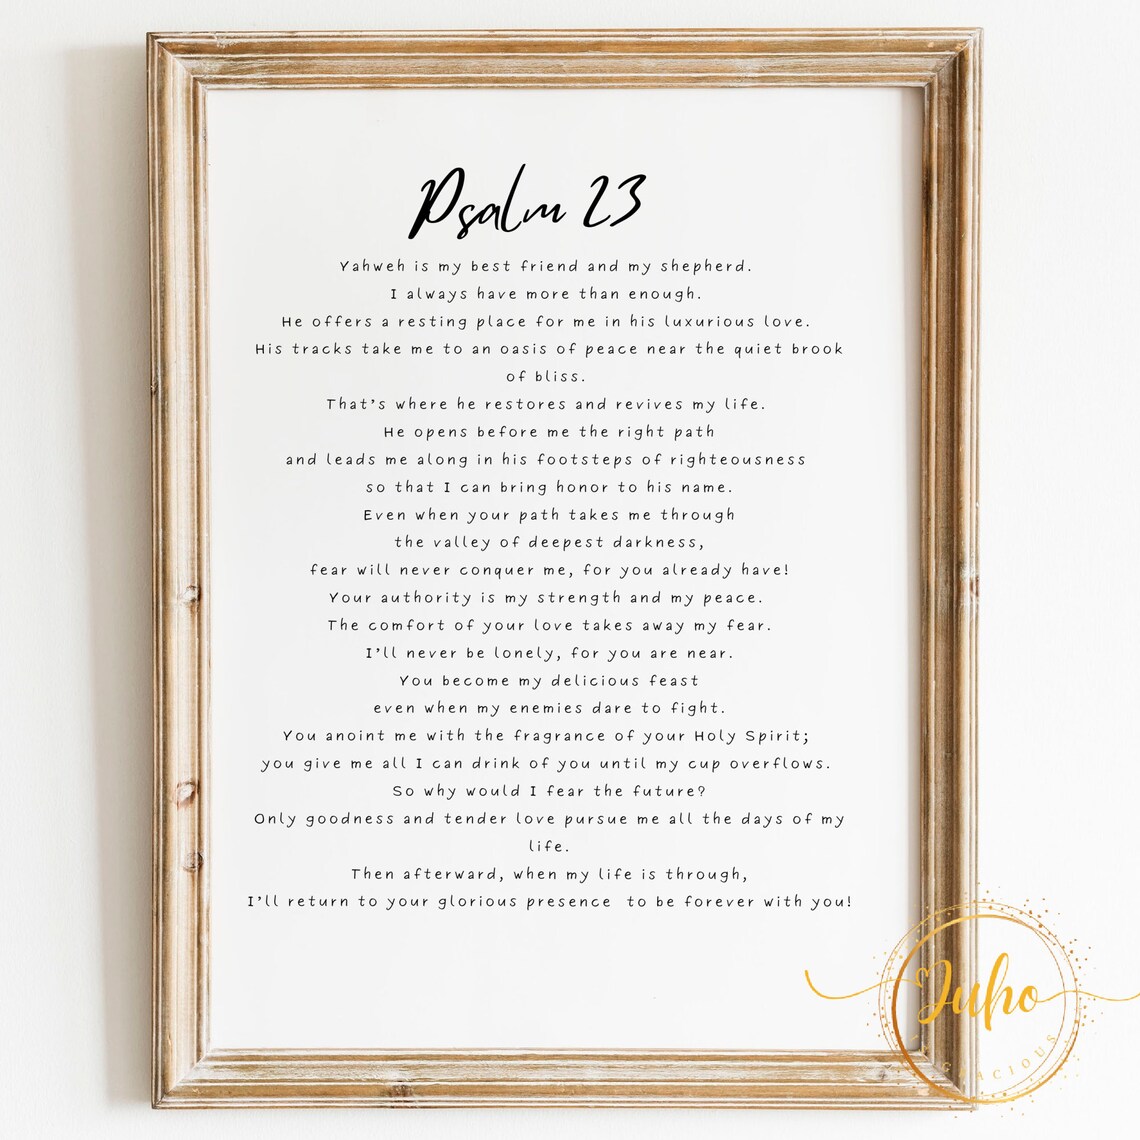 Psalm 23
Yahweh is my best friend and my shepherd.
I always have more than enough.
He offers a resting place for me in his luxurious love.
His tracks take me to an oasis of peace near the quiet brook
of bliss.
That's where he restores and revives my life.
He opens before me the right path
and leads me along in his footsteps of righteousness
so that I can bring honor to his name.
Even when your path takes me through
the valley of deepest darkness,
fear will never conquer me, for you already have!
Your authority is my strength and my peace.
The comfort of your love takes away my fear.
I'll never be lonely, for you are near.
You become my delicious feast
even when my enemies dare to fight.
You anoint me with the fragrance of your Holy Spirit;
you give me all I can drink of you until my cup overflows.
So why would I fear the future?
Only goodness and tender love pursue me all the days of my
life.
Then afterward, when my life is through,
I'll return to your glorious presence to be forever with you!
Juho